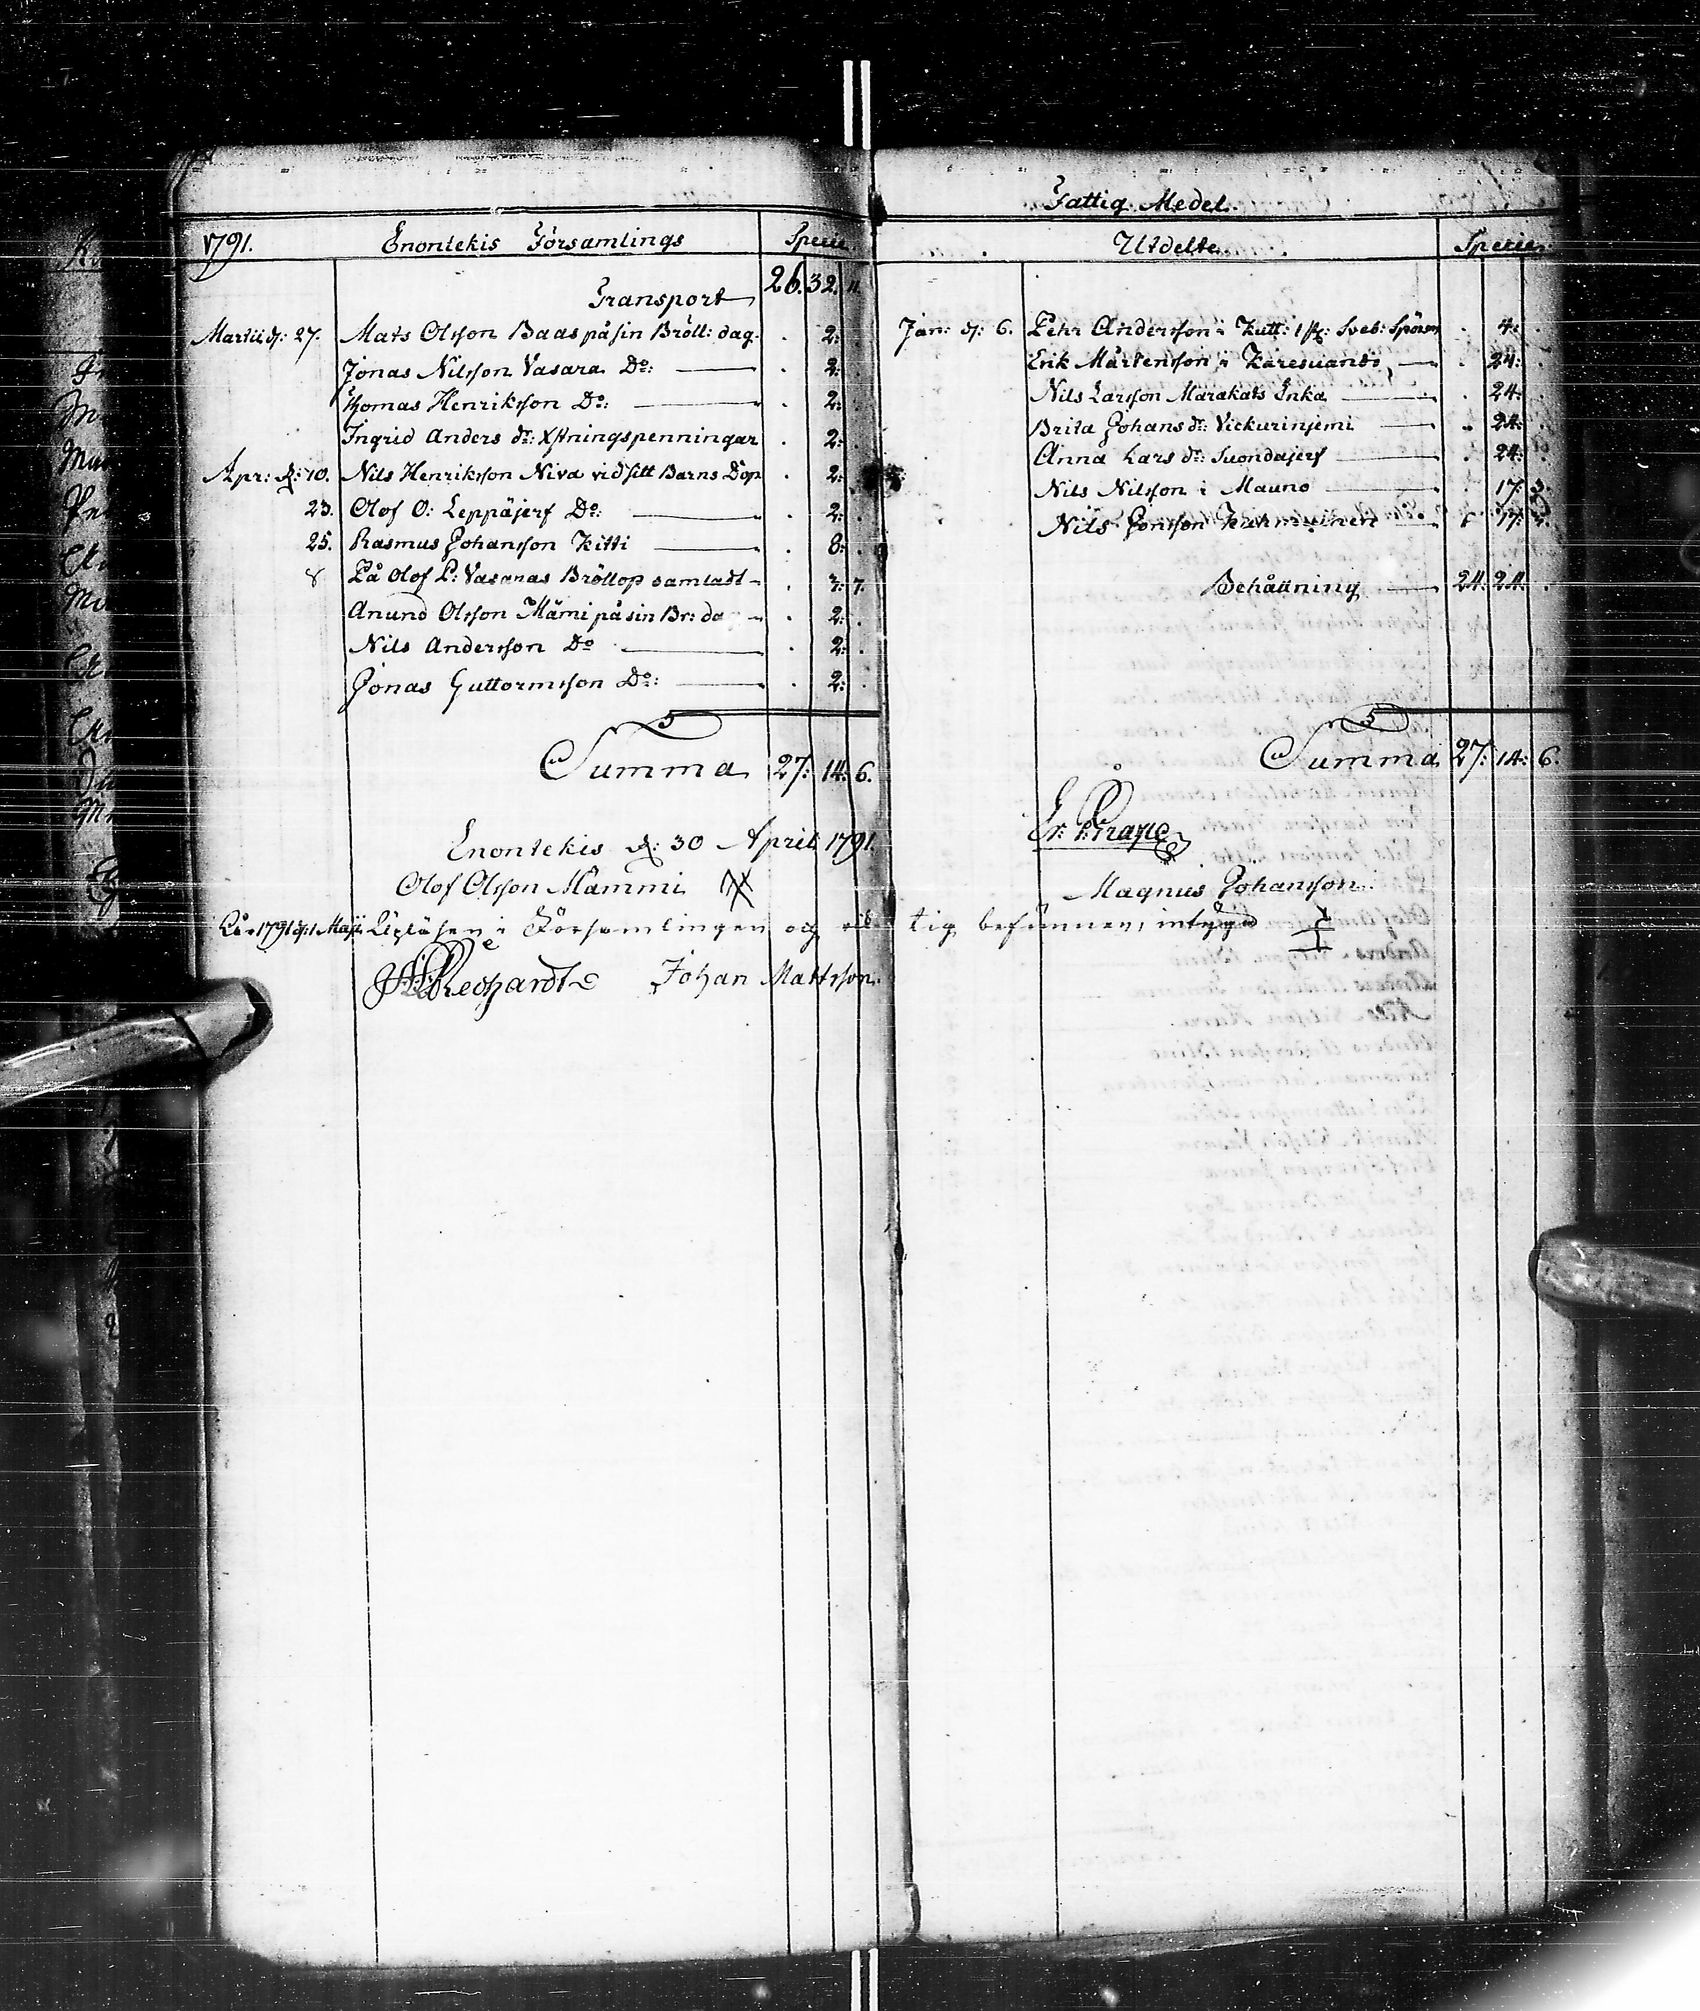 1791. Enontekis Församlings Specie.
Transport 26. 32. 11.
Martii d: 27. Mats Olsson Baas på sin Bröll: dag. . 2: .
Jonas Nilsson Vasara Do: . 2: .
Thomas Henriksson Do: . 2: .
Ingrid Anders dr: Xstningspenningar . 2: .
Apr: d: 10. Nils Henriksson Niva vid sitt Barns Dop . 2: .
23. Olof O: Leppäjerf Do: . 2: .
25. Rasmus Johansson Kitti . 8: .
På Olof P: Vasaras Bröllop samladt . 3: 7.
Anund Olsson Mämi på sin Br: da . 2: .
Nils Andersson Do . 2: .
Jonas Guttormsson Do: . 2: .
Summa 27: 14: 6.
Enontekis d: 30 April 1791.
Olof Olsson Mämmi
Fattig Medel.
Utdelte. Specie.
Jan: d: 6. Pehr Andersson i Kutt: . 4: .
Erik Mårtensson i Karesuando . 24: .
Nils Larsson Marakats Inka . 24: .
Brita Johans dr: Vickurinjemi . 24: .
Anna Lars dr: Suondajerf . 24: .
Nils Nilsson i Mauno . 17: 3.
Nils Jonsson Kuhmuinen . 17: 3.
Behållning 24. 24. .
Summa 27: 14: 6.
Magnus Johansson
År 1791 d: 1 Maji Upläsen i Församlingen och riktig befunnen, intyga
Johan Mattsson.